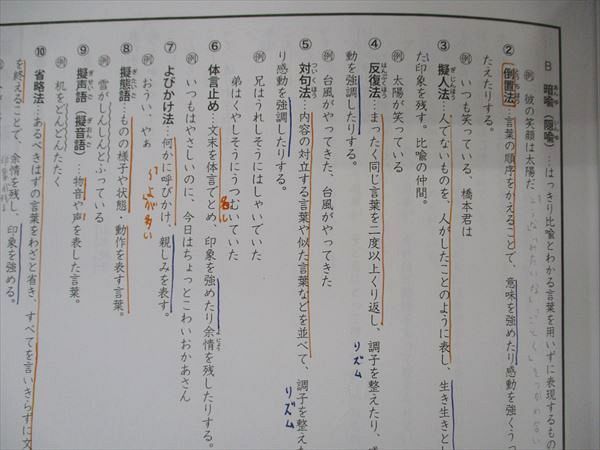 B 暗喩(隠喩)…はっきり比喩とわかる言葉を用いずに表現するもの
例 彼の笑顔は太陽だ
② 倒置法…言葉の順序をかえることで、意味を強めたり感動を強くうっ
たえたりする。
例 いつも笑っている、橋本君は
③ 擬人法…人でないものを、人がしたことのように表し、生き生きとし
た印象を残す。比喩の仲間。
例 太陽が笑っている
④ 反復法…まったく同じ言葉を二度以上くり返し、調子を整えたり、
リズム
動を強調したりする。
例 台風がやってきた、台風がやってきた
⑤ 対句法…内容の対立する言葉や似た言葉などを並べて、調子を整えた
リズム
り感動を強調したりする。
例 兄はうれしそうにはしゃいでいた
弟はくやしそうにうつむいていた
⑥ 体言止め…文末を体言でとめ、印象を強めたり余情を残したりする。
名詞
例 いつもはやさしいのに、今日はちょっとこわいおかあさん
⑦ よびかけ法…何かに呼びかけ、親しみを表す。
よが多い
例 おうい、やぁ
⑧ 擬態語…ものの様子や状態・動作を表す言葉。
例 雪がしんしんとふっている
⑨ 擬声語(擬音語)…物音や声を表した言葉。
例 机をどんどんたたく
⑩ 省略法…あるべきはずの言葉をわざと省き、すべてを言いきらずに文
を終えることで、余情を残し、印象を強める。